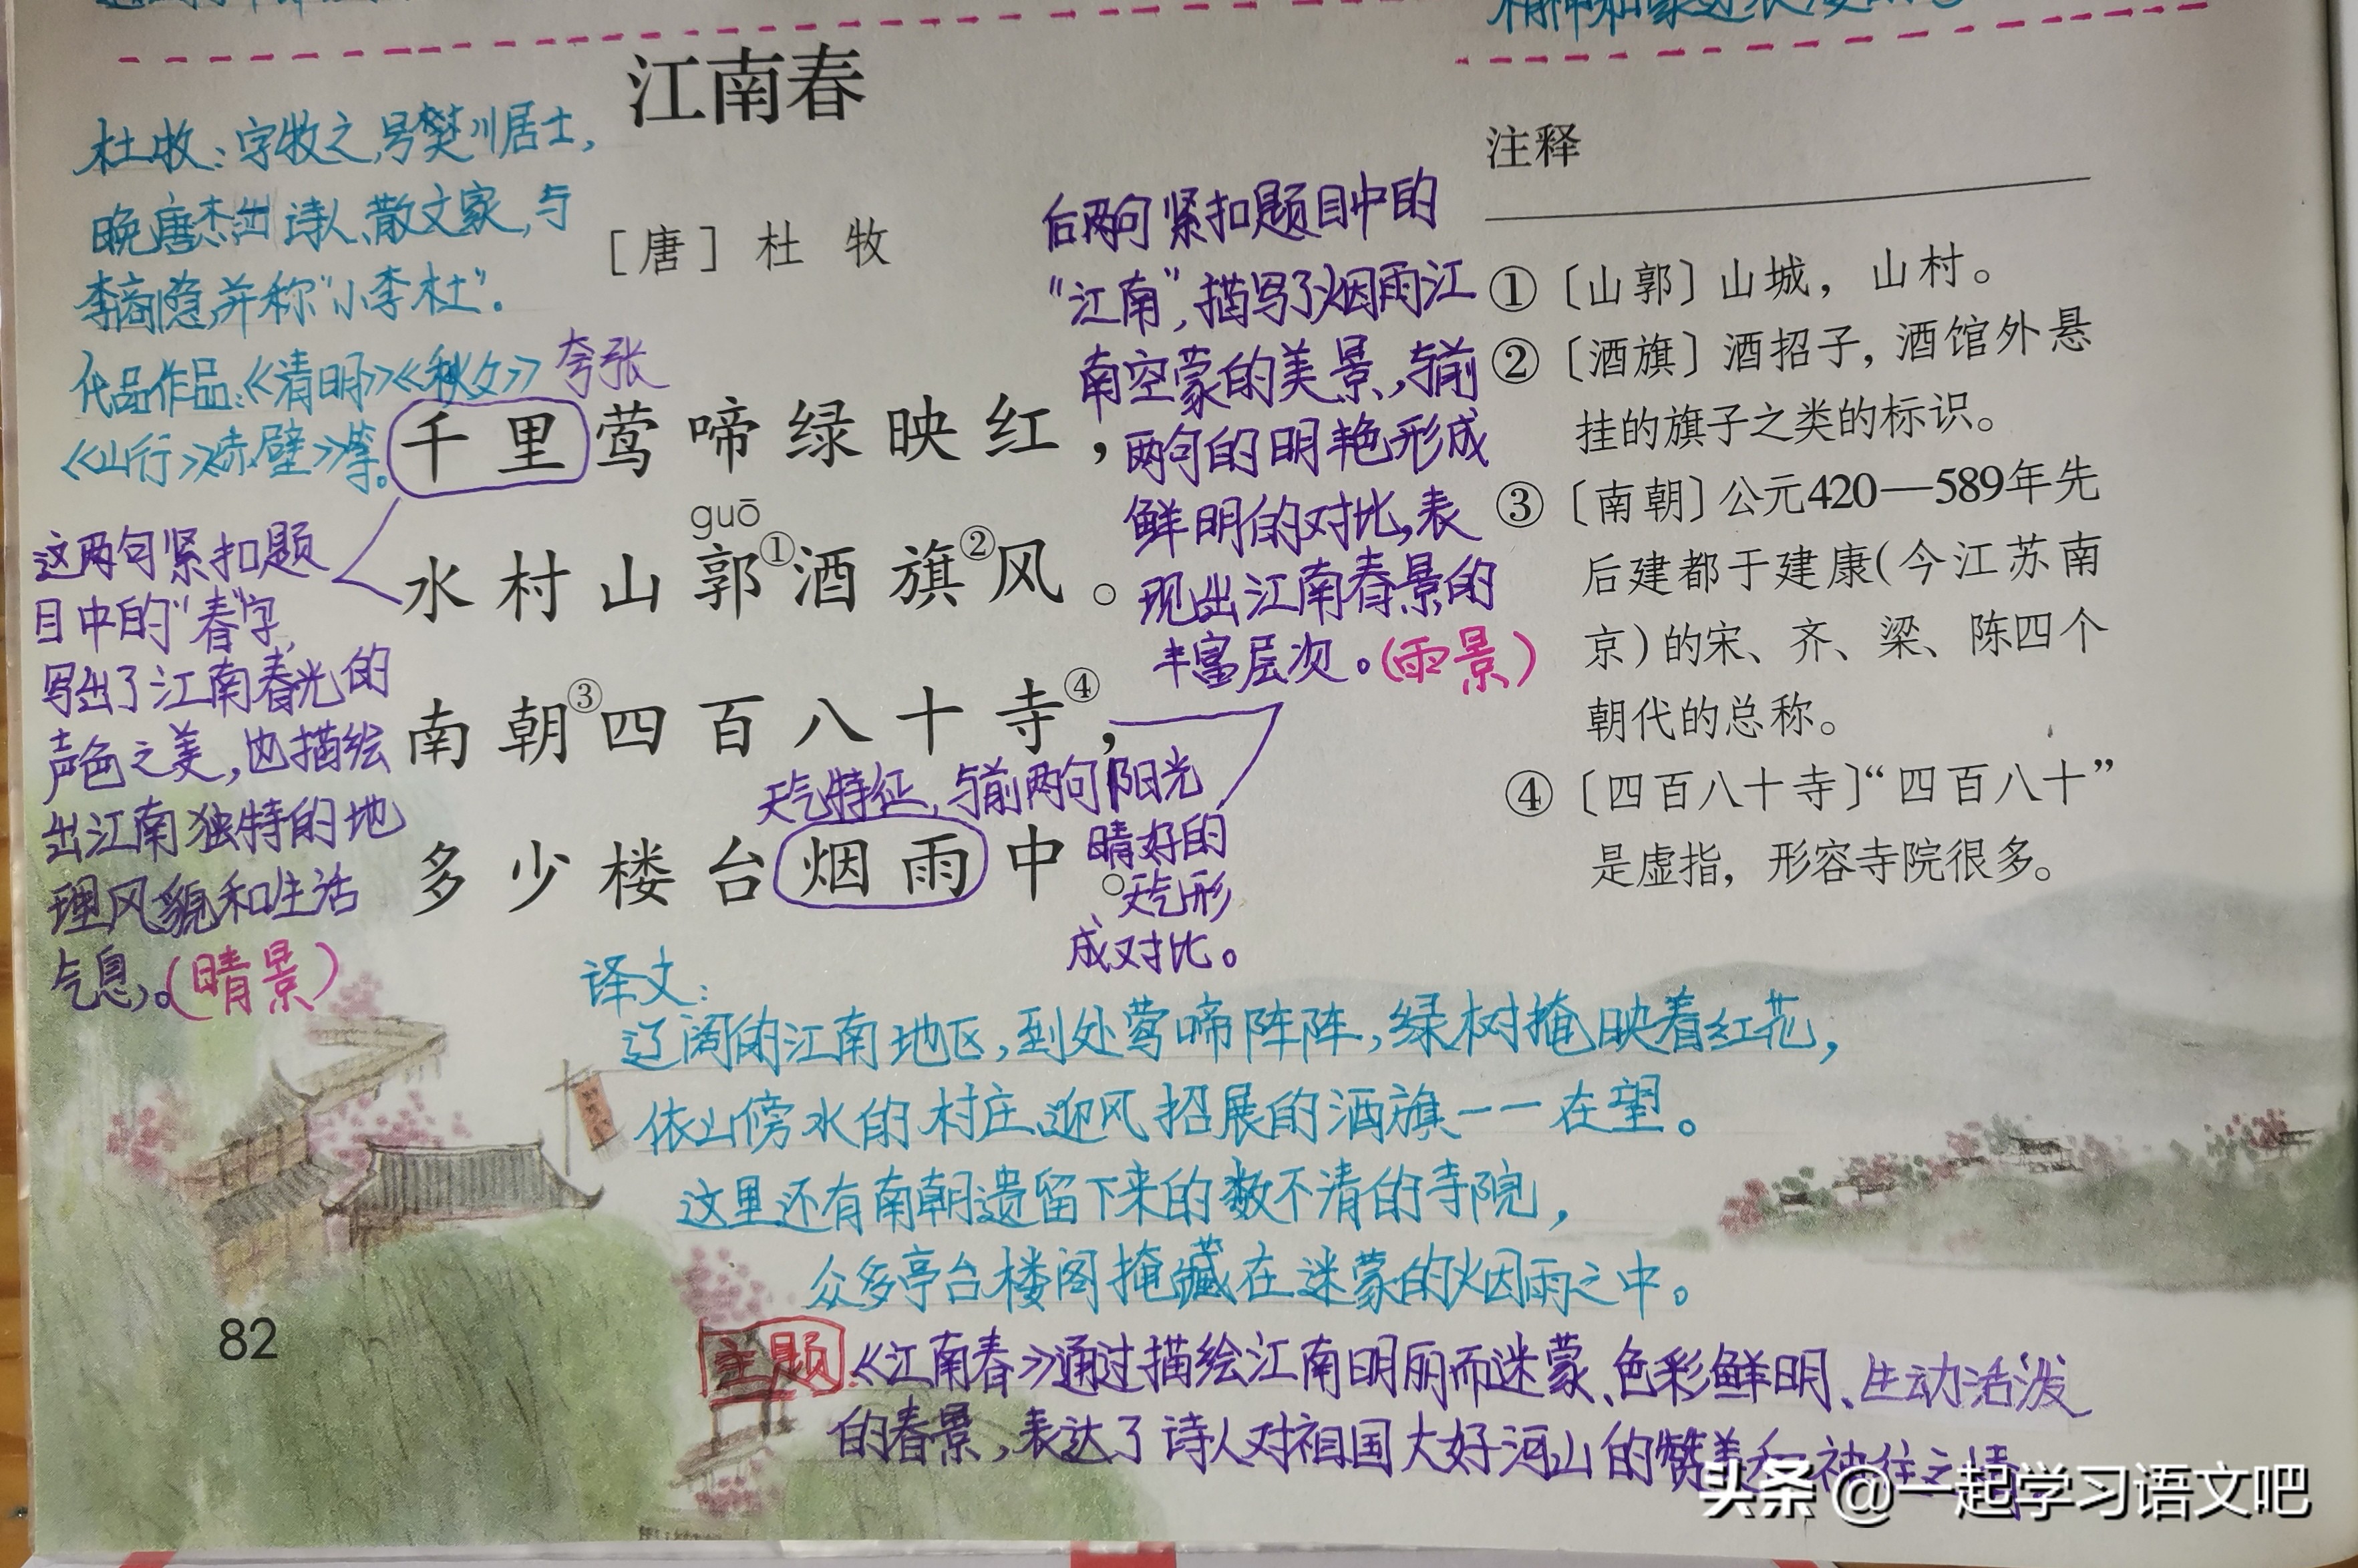 江南春
[唐] 杜 牧
杜牧：字牧之，号樊川居士，
晚唐杰出诗人、散文家，与
李商隐并称“小李杜”。
代品作品：《清明》《秋夕》
《山行》《赤壁》等。
夸张
千里莺啼绿映红，
guō
水村山郭①酒旗②风。
南朝③四百八十寺④，
多少楼台烟雨中。
这两句紧扣题
目中的“春”字，
写出了江南春光的
声色之美，也描绘
出江南独特的地
理风貌和生活
气息。（晴景）
后两句紧扣题目中的
“江南”，描写了烟雨江
南空蒙的美景，与前
两句的明艳形成
鲜明的对比，表
现出江南春景的
丰富层次。（雨景）
天气特征，与前两句阳光
晴好的
天气形
成对比。
注释
①〔山郭〕山城，山村。
②〔酒旗〕酒招子，酒馆外悬
挂的旗子之类的标识。
③〔南朝〕公元420—589年先
后建都于建康（今江苏南
京）的宋、齐、梁、陈四个
朝代的总称。
④〔四百八十寺〕“四百八十”
是虚指，形容寺院很多。
译文：
辽阔的江南地区，到处莺啼阵阵，绿树掩映着红花，
依山傍水的村庄、迎风招展的酒旗一一在望。
这里还有南朝遗留下来的数不清的寺院，
众多亭台楼阁掩藏在迷蒙的烟雨之中。
主题：《江南春》通过描绘江南明丽而迷蒙、色彩鲜明、生动活泼
的春景，表达了诗人对祖国大好河山的赞美和神往之情
82
头条 @一起学习语文吧